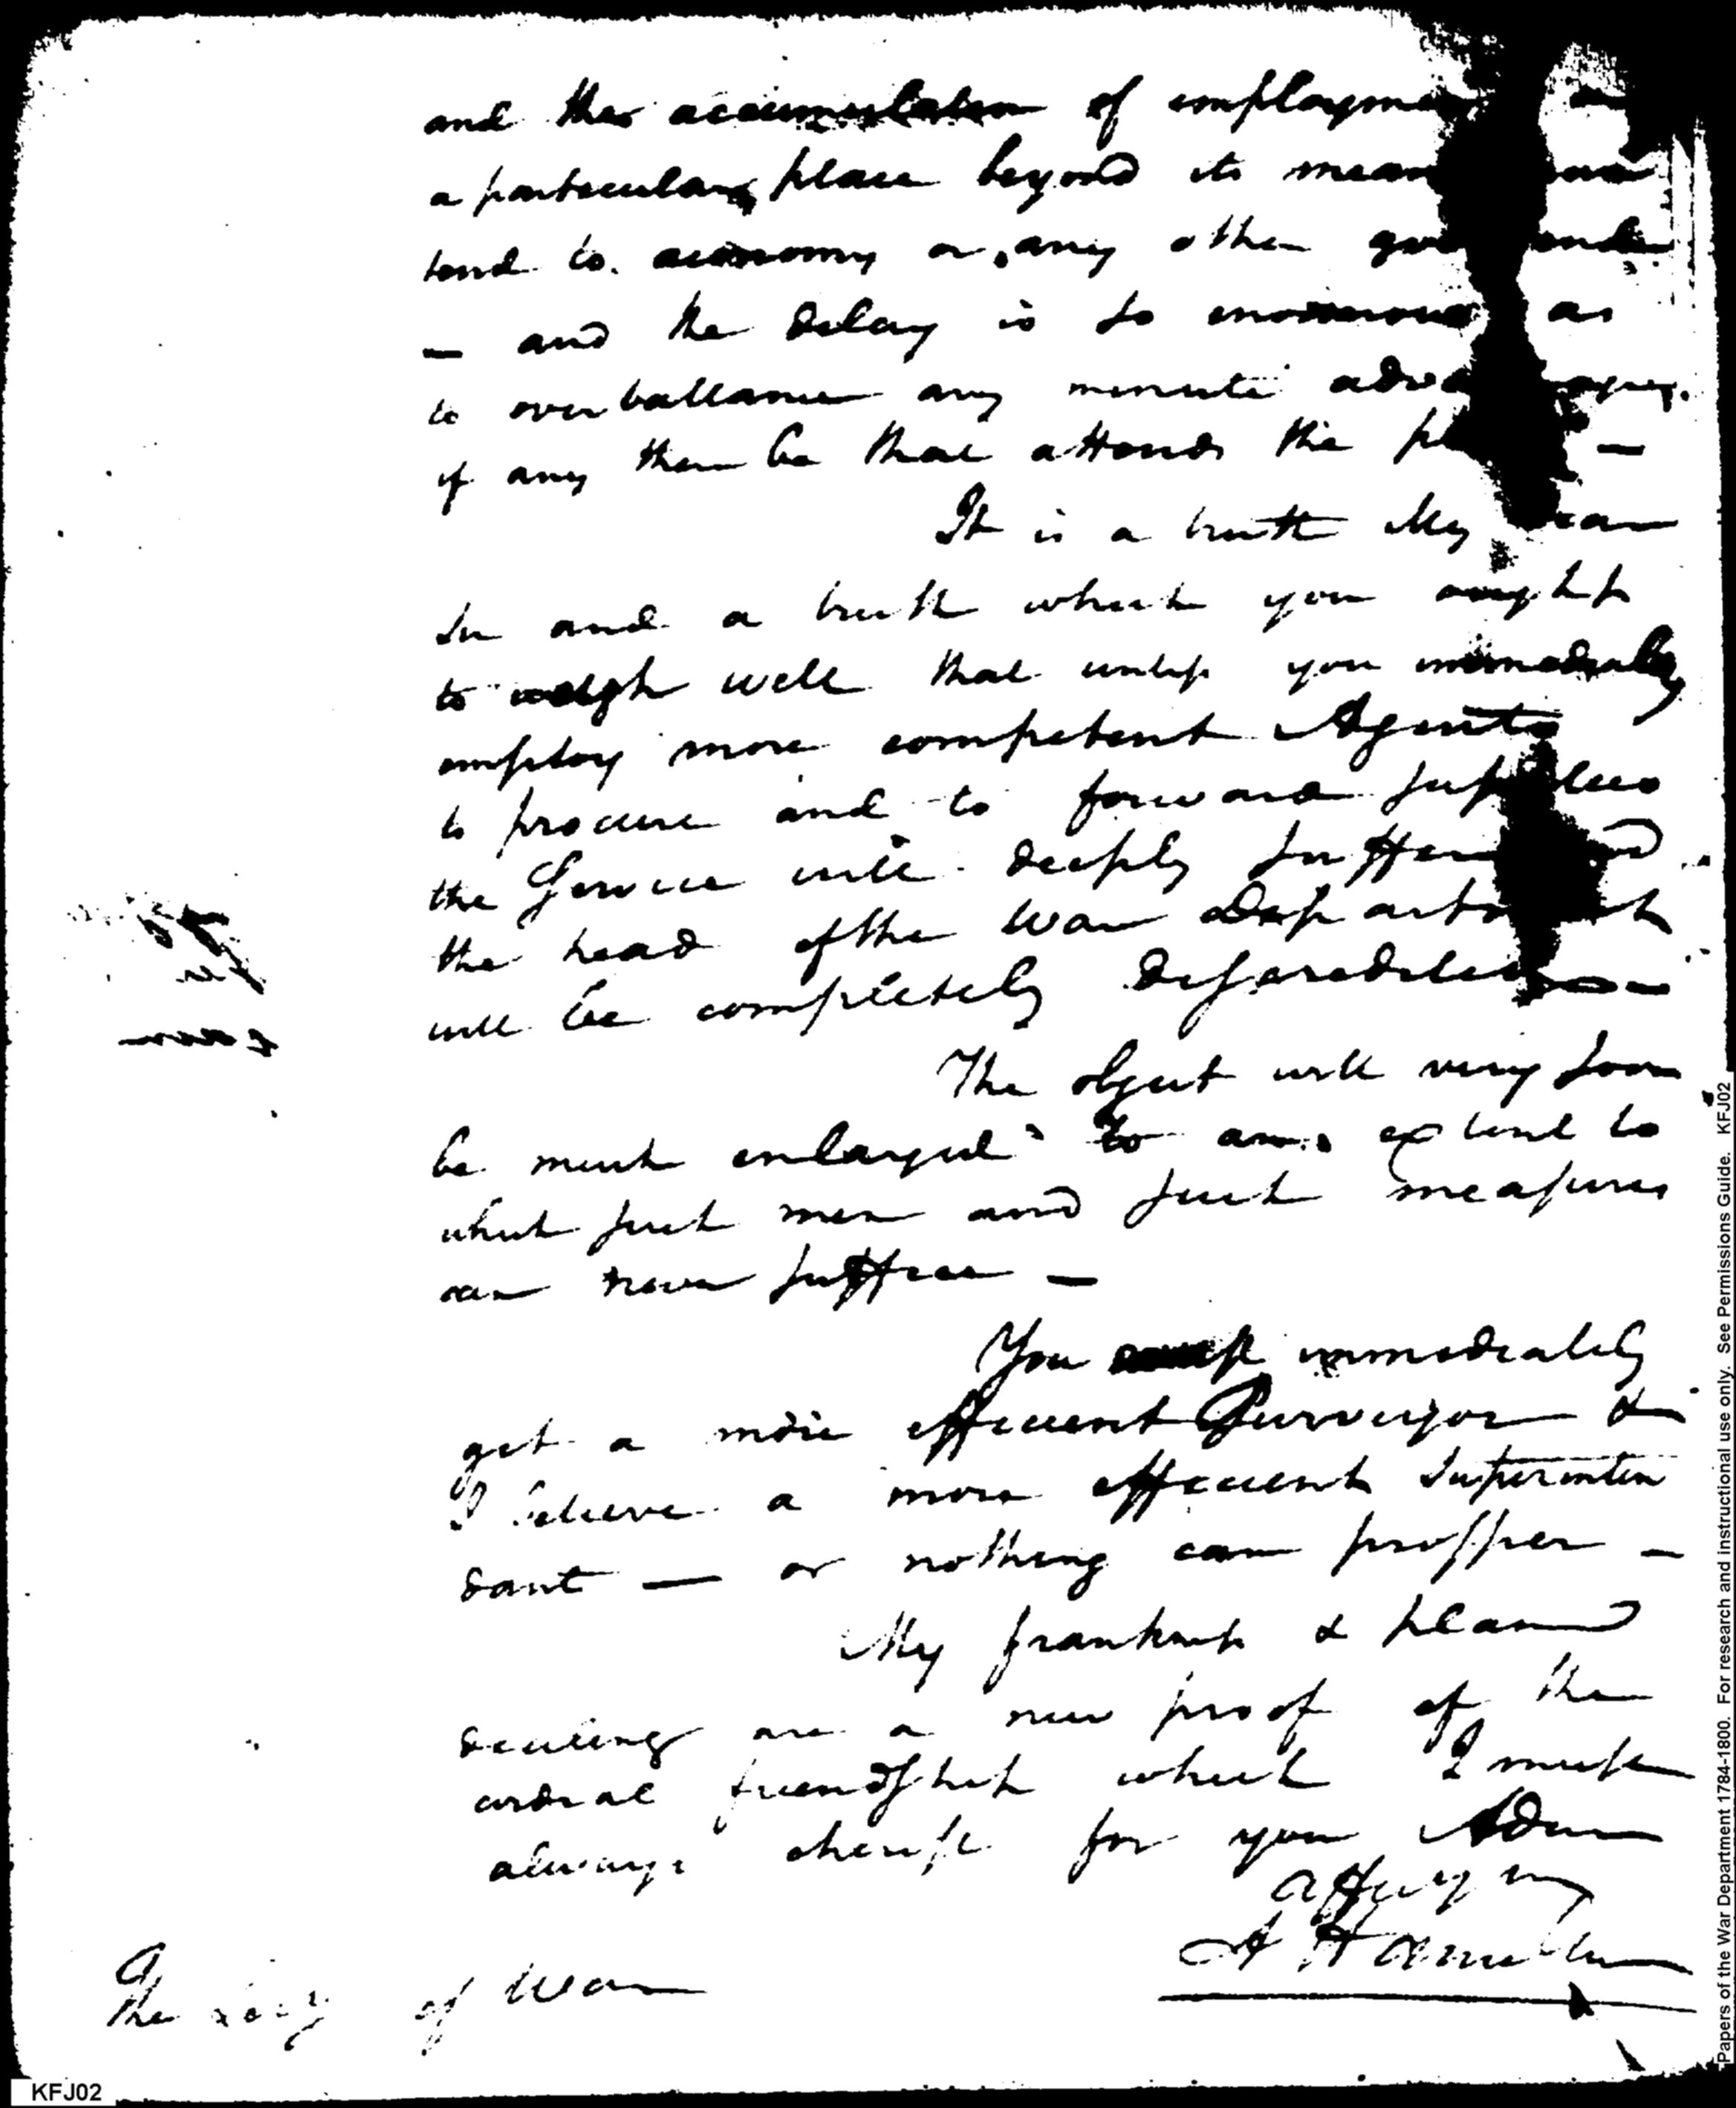 and the accumulation of employme
a particular place beyond its mean
tend to œconomy or any other go end
— and the delay is so enormous as
to overballance any minute adva
if any there be that attends the pl —
It is a truth My ear
Sir and a truth which you ought
to weigh well that unless you immediately
employ more competent Agents
to procure and to forward supplies
the Service will deeply suffer and
the head of the War Depart
will be completely discredited —
The object will very soon
be much enlarged to an extent to
which such men and such measures
can never suffice —
You must immediately
get a more efficient Purveyor &
I believe a more efficient Superinten
dant — or nothing can prosper —
My frankness & plain
dealing are a new proof of the
cordial friendship which I must
always cherish for you Adieu
Affecy Yrs
A Hamilton
The Secy of War
KFJ02
Papers of the War Department 1784-1800. For research and instructional use only. See Permissions Guide. KFJ02